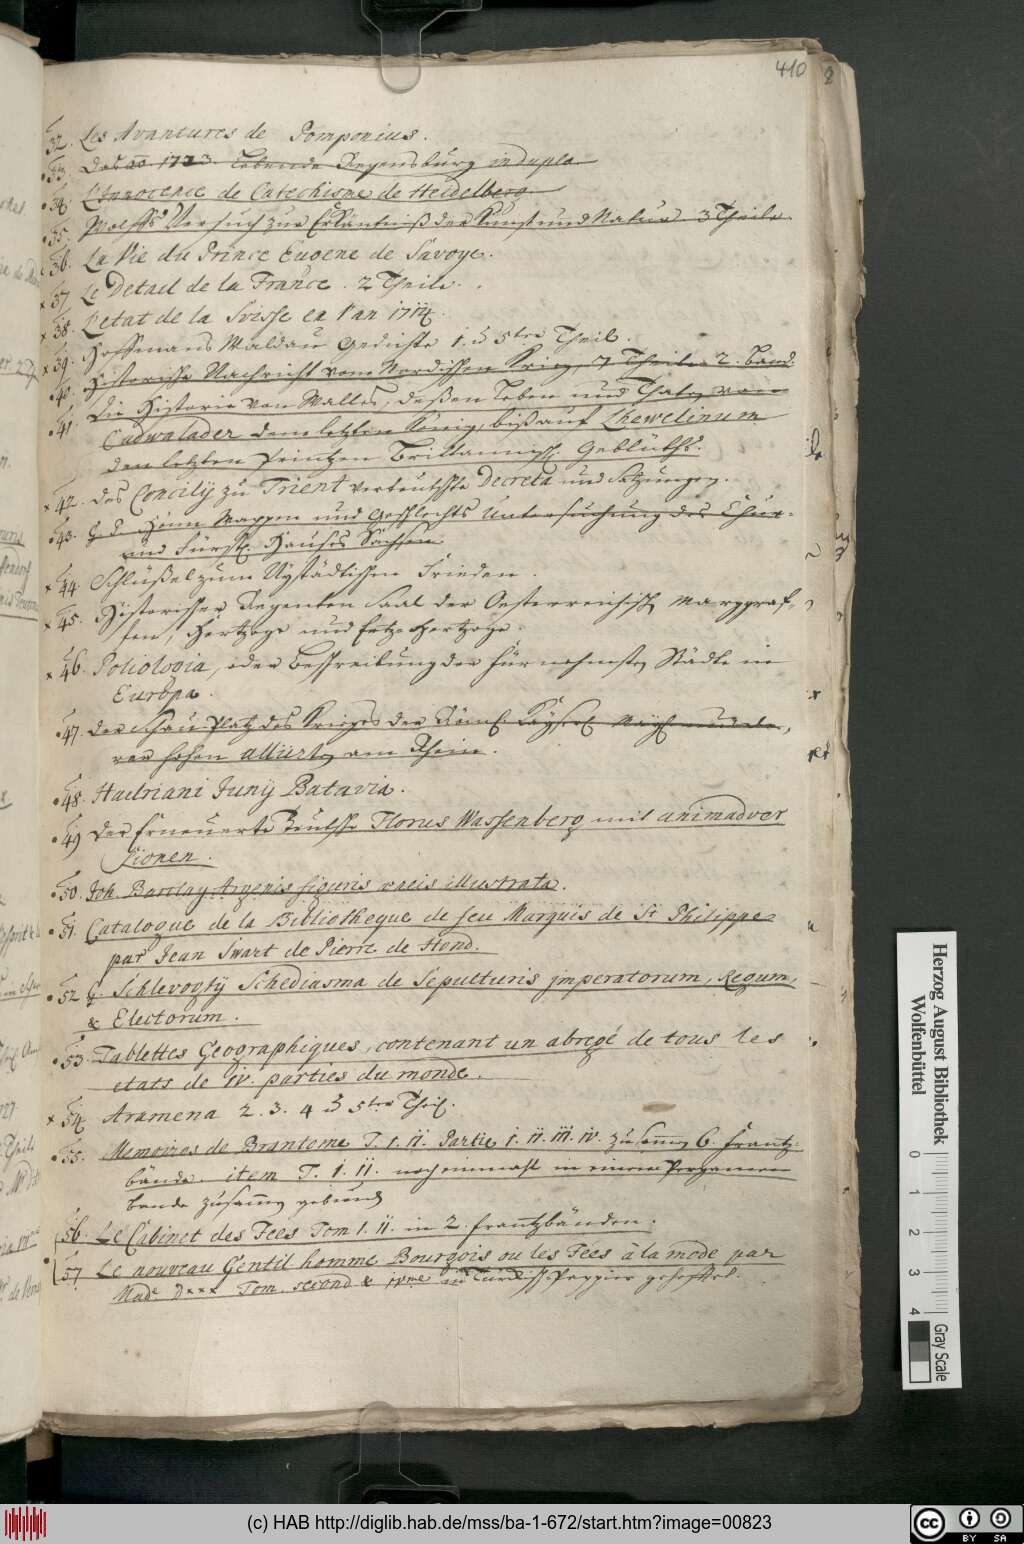 410
32. Les Avantures de Pomponius.
33. Das ao 1723. lebende Regensburg in duplo
34. L'Innocence de Catechisme de Heidelberg
35. Wolffs Versuch zur Erkäntniß der Kunst und Natur 3 Theile.
36. La Vie du Prince Eugene de Savoye.
37. Le Detail de la France. 2 Theile.
38. L'etat de la Svisse en l'an 1714.
39. Hoffmans Waldau Gedichte 1. 5ter Theil.
40. Historische Nachricht vom Nordischen Krieg, 7 Theile 2. Band.
41. Die Historie von Walles, deßen Leben und Thaten von
Cadwalader dem letzten König, biß auf Lhewelinum
den letzten Printzen Brittannisch. Geblüths.
42. Des Concilij zu Trient verteutschte Decreta und Satzungen.
43. Hönn Wappen und Geschlechts Untersuchung des Chur-
und Fürstl. Hauses Sachsen
44. Schlüßel zum Nystädtischen Frieden.
45. Historischer Regenten Saal der Oesterreichisch Marggraf-
fen, Hertzoge und Ertz-Hertzoge.
46. Poliologia, oder Beschreibung der fürnehmsten Städte in
Europa.
47. Der Schau Platz des Krieges der Röm. Kayserl. Mayt.
rer hohen Alliirten am Rhein.
48. Hadriani Junij Batavia.
49 Der Erneuerte Teutsche Florus Wassenberg mit animadver
sionen.
50. Joh. Barclay Argenis figuris aeneis illustrata.
51. Catalogue de la Bibliotheque de feu Marquis de St Philippe
par Jean Swart de Pierre de Hond.
52 G. Schlevogtij Schediasma de Sepulturis jmperatorum, Regum,
& Electorum.
53. Tablettes Geographiques, contenant un abregé de tous les
etats de IV. parties du monde.
54. Aramena 2. 3. 4 5ter Theil.
55. Memoires de Brantome T. I. II. Partie I. II. III. IV. zusamen 6. Frantz-
bände. item T. I. II. noch einmahl in einem Pergamen
Bande zusamen gebund
56. Le Cabinet des Fées Tom I. II. in 2. Frantzbänden.
57. Le nouveau Gentil homme Bourgois ou les Fées à la mode par
Made D*** Tom. second & IVme in Türckisch Pappier geheftet.
Herzog August Bibliothek
Wolfenbüttel
0 1 2 3 4
Gray Scale
(c) HAB http://diglib.hab.de/mss/ba-1-672/start.htm?image=00823
cc BY SA